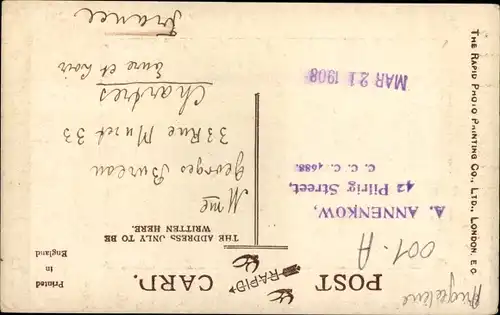 THE RAPID PHOTO PRINTING CO., LTD., LONDON. E C
POST CARD.
RAPID
Printed
in
England
THE ADDRESS ONLY TO BE
WRITTEN HERE.
001-A
A. ANNENKOW,
42 Pilrig Street,
C. C. C. 4688.
MAR 21 1908
Mme
Georges Bureau
33 Rue Muret 33
Chartres
Eure et Loir
France